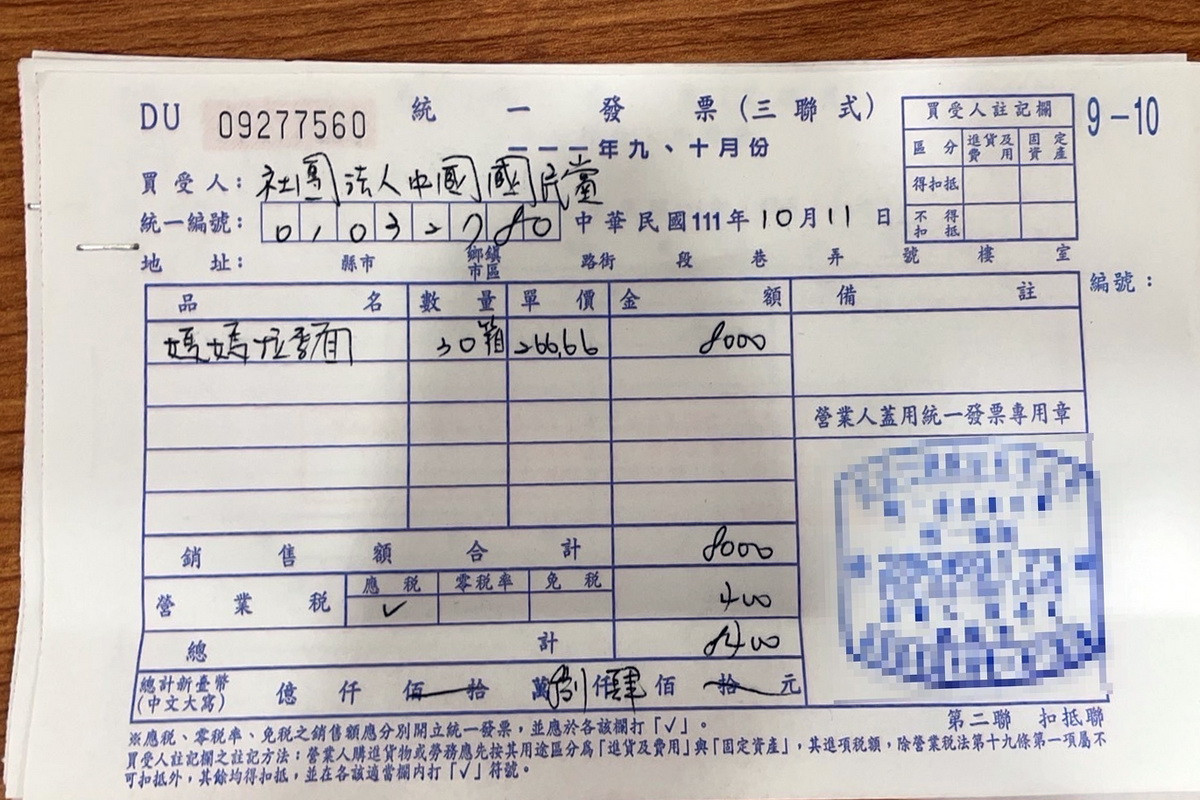 DU 09277560 統一發票(三聯式)
9-10
一一一年九、十月份
買受人註記欄
區分 進貨及費用 固定資產
得扣抵
不得扣抵
買受人：社團法人中國國民黨
統一編號：01032780 中華民國111年10月11日
地址： 縣市 鄉鎮市區 路街 段 巷 弄 號 樓 室
編號：
品名 數量 單價 金額 備註
媽媽拉麵 30箱 266.66 8000
營業人蓋用統一發票專用章
銷售額合計 8000
營業稅 應稅 零稅率 免稅 400
✓
總計 8400
總計新臺幣(中文大寫) 億 仟 佰 拾 萬 捌 仟 肆 佰 拾 元
第二聯 扣抵聯
※應稅、零稅率、免稅之銷售額應分別開立統一發票，並應於各該欄打「✓」。
買受人註記欄之註記方法：營業人購進貨物或勞務應先按其用途區分為「進貨及費用」與「固定資產」，其進項稅額，除營業稅法第十九條第一項屬不
可扣抵外，其餘均得扣抵，並在各該適當欄內打「✓」符號。